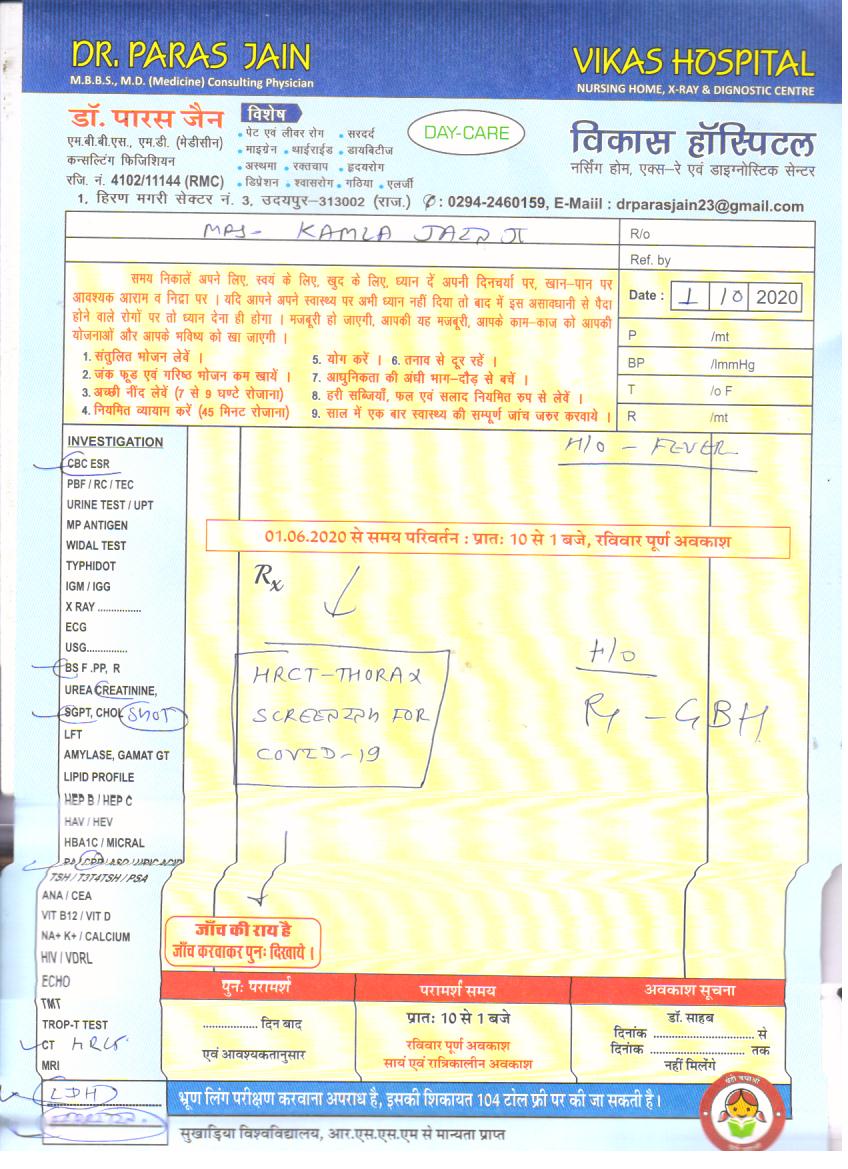 DR. PARAS JAIN
M.B.B.S., M.D. (Medicine) Consulting Physician
VIKAS HOSPITAL
NURSING HOME, X-RAY & DIGNOSTIC CENTRE
डॉ. पारस जैन
एम.बी.बी.एस., एम.डी. (मेडीसीन)
कन्सल्टिंग फिजिशियन
रजि. नं. 4102/11144 (RMC)
विशेष
• पेट एवं लीवर रोग • सरदर्द
• माइग्रेन • थाईराईड • डायबिटीज
• अस्थमा • रक्तचाप • हृदयरोग
• डिप्रेशन • श्वासरोग • गठिया • एलर्जी
DAY-CARE
विकास हॉस्पिटल
नर्सिंग होम, एक्स-रे एवं डाइग्नोस्टिक सेन्टर
1, हिरण मगरी सेक्टर नं. 3, उदयपुर-313002 (राज.) ✆ : 0294-2460159, E-Maiil : drparasjain23@gmail.com
MRS- KAMLA JAIN JI
R/o
Ref. by
Date : 1 10 2020
P /mt
BP /ImmHg
T /o F
R /mt
समय निकालें अपने लिए, स्वयं के लिए, खुद के लिए, ध्यान दें अपनी दिनचर्या पर, खान-पान पर
आवश्यक आराम व निद्रा पर । यदि आपने अपने स्वास्थ्य पर अभी ध्यान नहीं दिया तो बाद में इस असावधानी से पैदा
होने वाले रोगों पर तो ध्यान देना ही होगा । मजबूरी हो जाएगी, आपकी यह मजबूरी, आपके काम-काज को आपकी
योजनाओं और आपके भविष्य को खा जाएगी ।
1. संतुलित भोजन लेवें ।
2. जंक फूड एवं गरिष्ठ भोजन कम खायें ।
3. अच्छी नींद लेवें (7 से 9 घण्टे रोजाना)
4. नियमित व्यायाम करें (45 मिनट रोजाना)
5. योग करें । 6. तनाव से दूर रहें ।
7. आधुनिकता की अंधी भाग-दौड़ से बचें ।
8. हरी सब्जियाँ, फल एवं सलाद नियमित रुप से लेवें ।
9. साल में एक बार स्वास्थ्य की सम्पूर्ण जांच जरुर करवाये ।
INVESTIGATION
CBC ESR
PBF / RC / TEC
URINE TEST / UPT
MP ANTIGEN
WIDAL TEST
TYPHIDOT
IGM / IGG
X RAY ...............
ECG
USG..............
BS F .PP, R
UREA CREATININE,
SGPT, CHOL SNOT
LFT
AMYLASE, GAMAT GT
LIPID PROFILE
HEP B / HEP C
HAV / HEV
HBA1C / MICRAL
RA / CRP / ASO URIC ACID
TSH / T3T4TSH / PSA
ANA / CEA
VIT B12 / VIT D
NA+ K+ / CALCIUM
HIV / VDRL
ECHO
TMT
TROP-T TEST
CT HRCT
MRI
LDH
H/O - FEVER
01.06.2020 से समय परिवर्तन : प्रातः 10 से 1 बजे, रविवार पूर्ण अवकाश
Rx
HRCT-THORAX
SCREENING FOR
COVID-19
H/O
R4 - GBH
जाँच की राय है
जाँच करवाकर पुनः दिखाये ।
पुनः परामर्श
.................. दिन बाद
एवं आवश्यकतानुसार
परामर्श समय
प्रातः 10 से 1 बजे
रविवार पूर्ण अवकाश
सायं एवं रात्रिकालीन अवकाश
अवकाश सूचना
डॉ. साहब
दिनांक ...................... से
दिनांक ...................... तक
नहीं मिलेंगे
भ्रूण लिंग परीक्षण करवाना अपराध है, इसकी शिकायत 104 टोल फ्री पर की जा सकती है।
सुखाड़िया विश्वविद्यालय, आर.एस.एस.एम से मान्यता प्राप्त